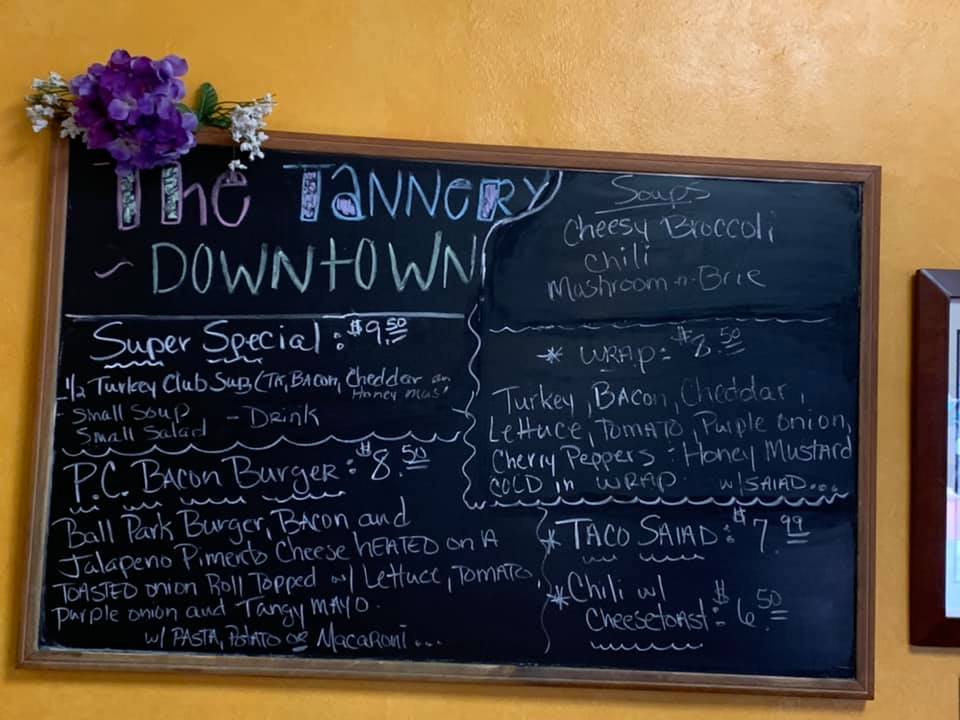 The TANNERY
~ DOWNtOWN
Super Special: $9.50
1/2 Turkey Club Sub (TK, BACON, Cheddar an
Honey Mus'
- Small Soup
Small Salad - Drink
P.C. BACON BURGER: $8.50
Ball Park Burger, BACON and
Jalapeno Pimento Cheese hEATED ON A
TOASTED onion Roll Topped w/ Lettuce, TOMATO,
purple onion and Tangy MAYO.
w/ PASTA, POTATO OR MACARONI ...
Soups
Cheesy Broccoli
Chili
Mushroom-n-Brie
* WRAP: $8.50
Turkey, BACON, Cheddar,
Lettuce, TOMATO, Purple onion,
Cherry Peppers: Honey Mustard
COLD in WRAP. w/ SALAD...
* TACO SALAD: $7.99
* Chili w/
Cheesetoast: $6.50